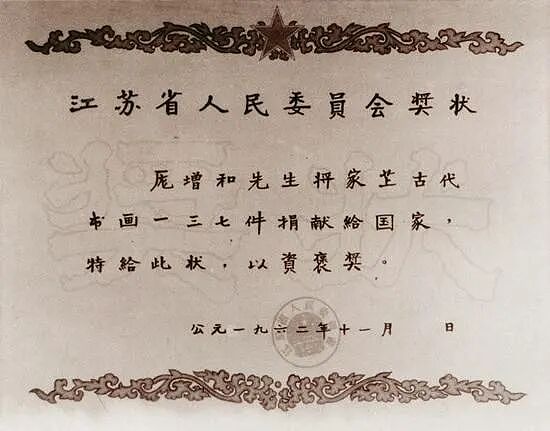 江苏省人民委員会奖状
厖增和先生将家芷古代
书画一三七件捐献給国家，
特給此状，以資褒奖。
公元一九六二年十一月　日